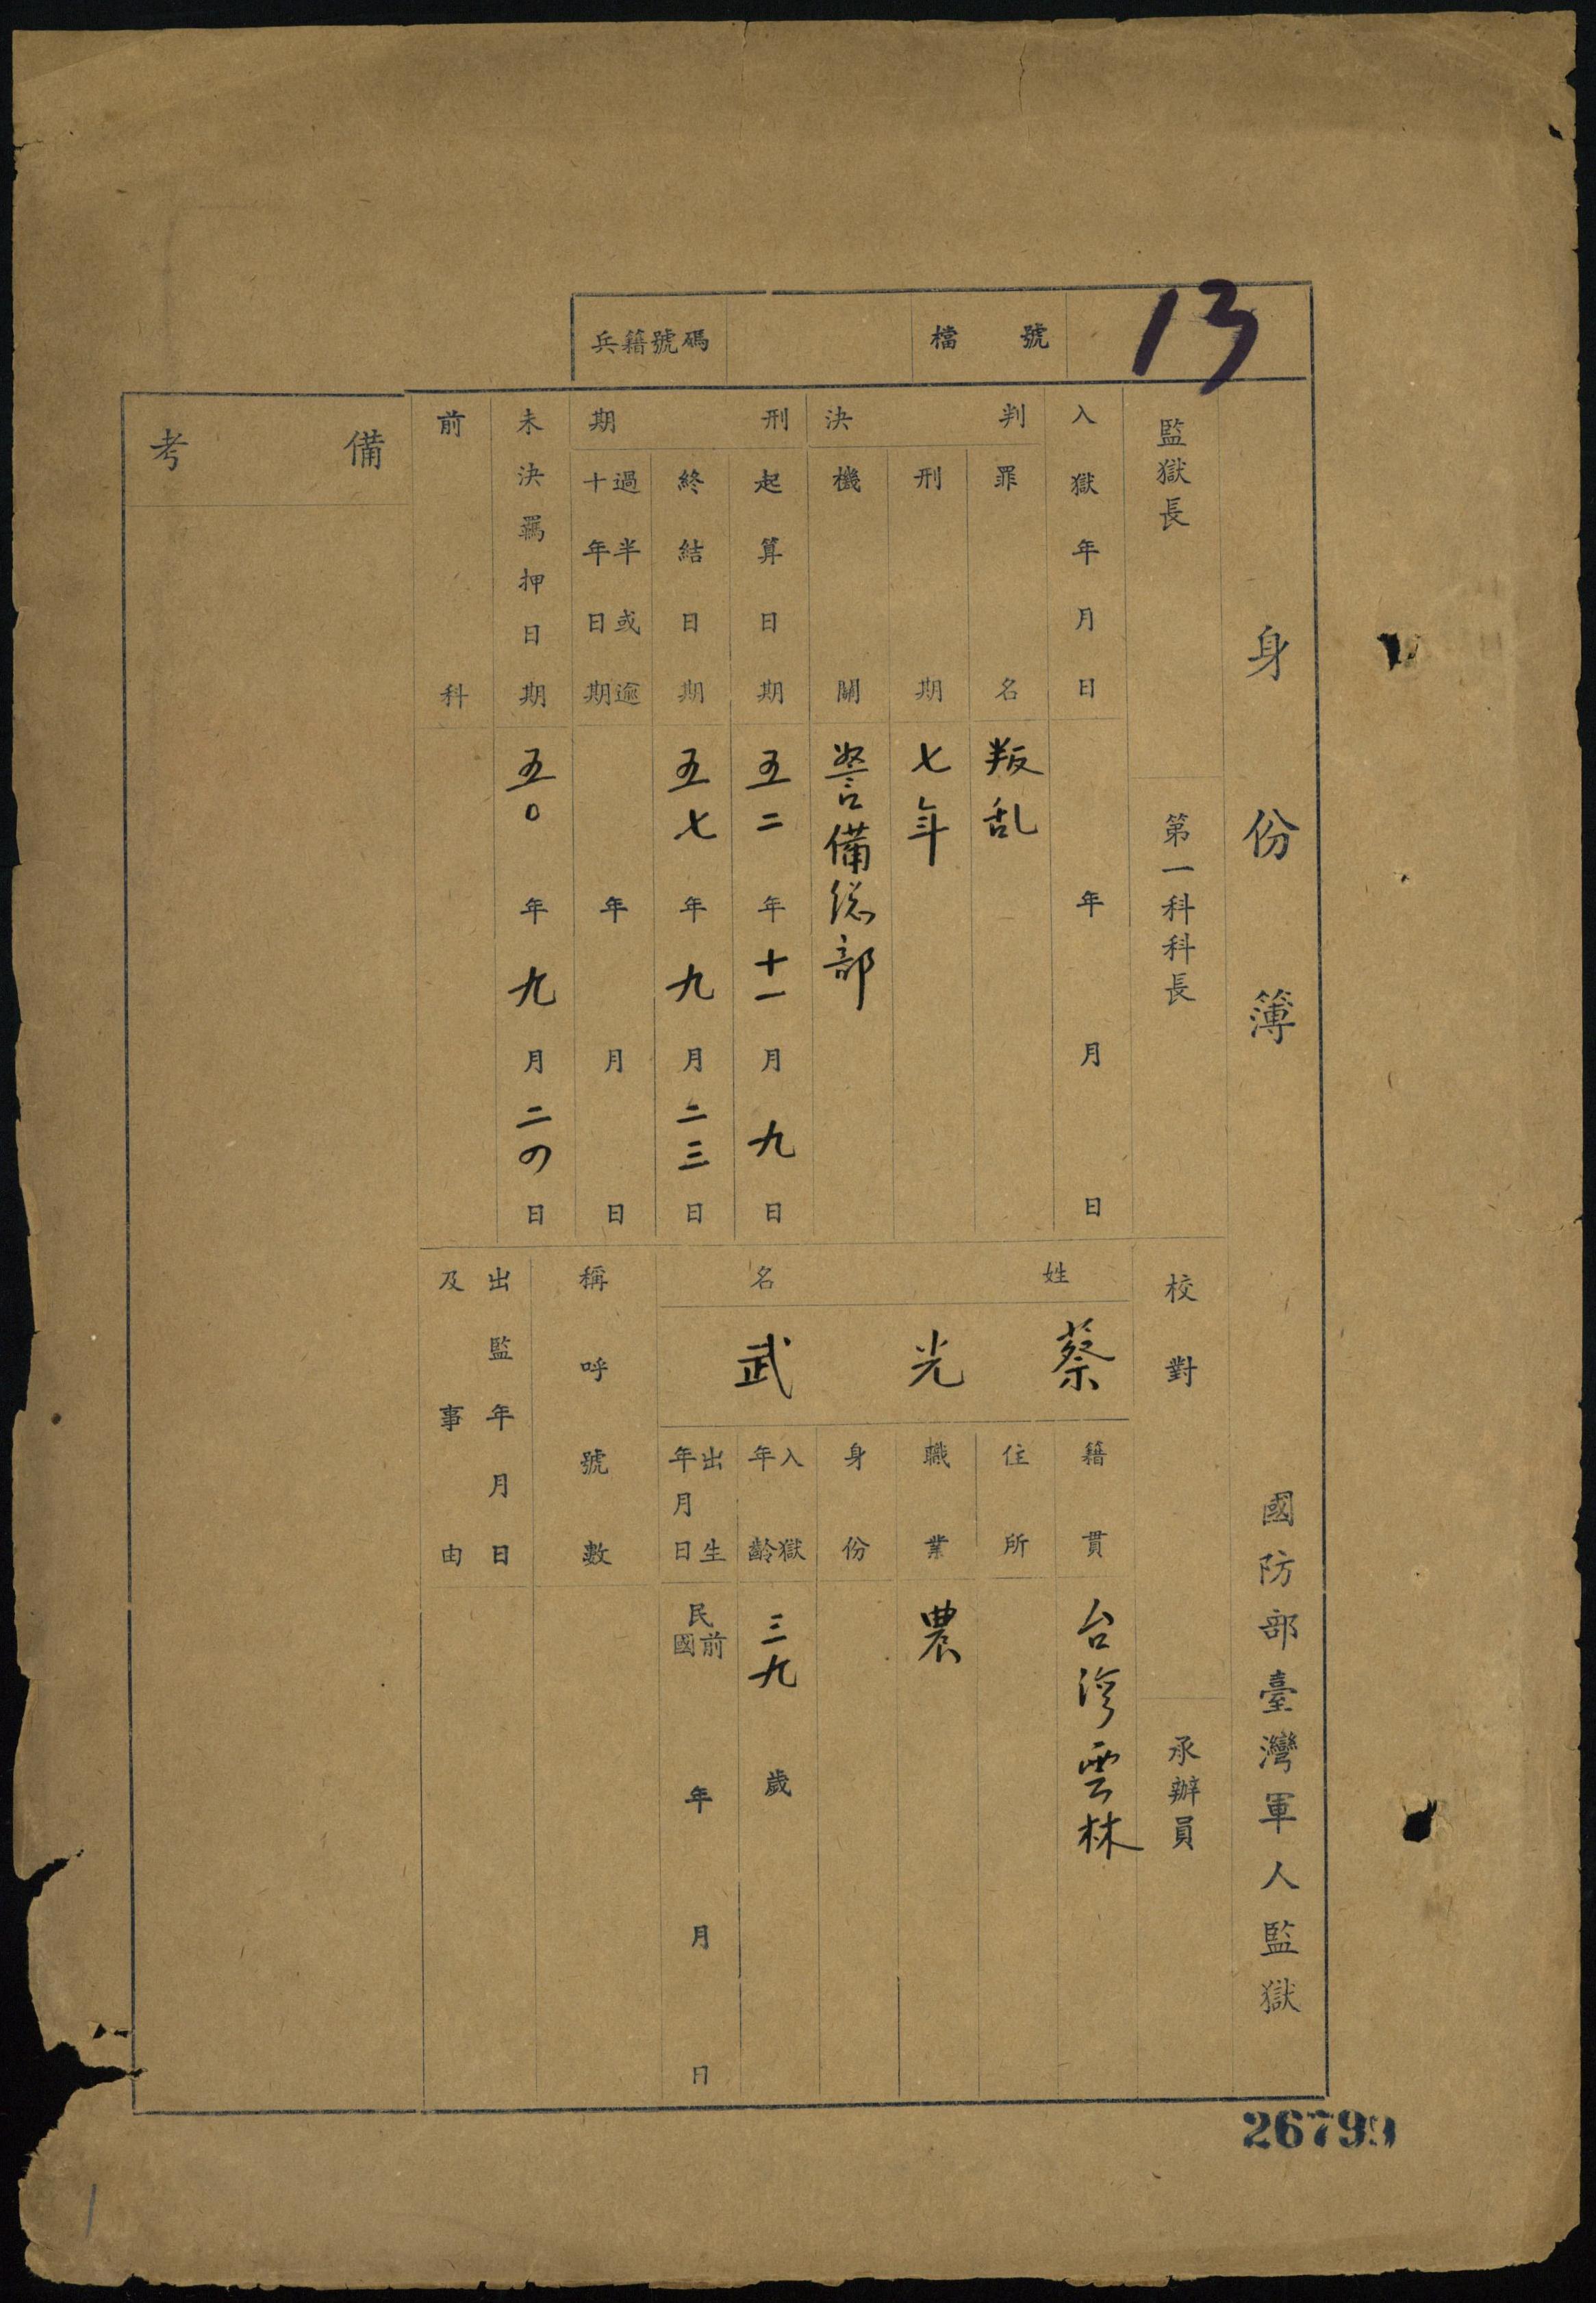 13
檔號
兵籍號碼
身份簿
國防部臺灣軍人監獄
監獄長
第一科科長
校對
承辦員
入獄年月日
年月日
判決
罪名
叛乱
刑期
七年
機關
警備総部
刑期
起算日期
五二年十一月九日
終結日期
五七年九月二三日
過半或逾
十年日期
年月日
未決羈押日期
五〇年九月二四日
前科
姓名
蔡光武
籍貫
台湾雲林
住所
職業
農
身份
入獄
年齡
三九歲
出生
年月日
民國前
年月日
稱呼號數
出監年月日
及事由
備考
26799